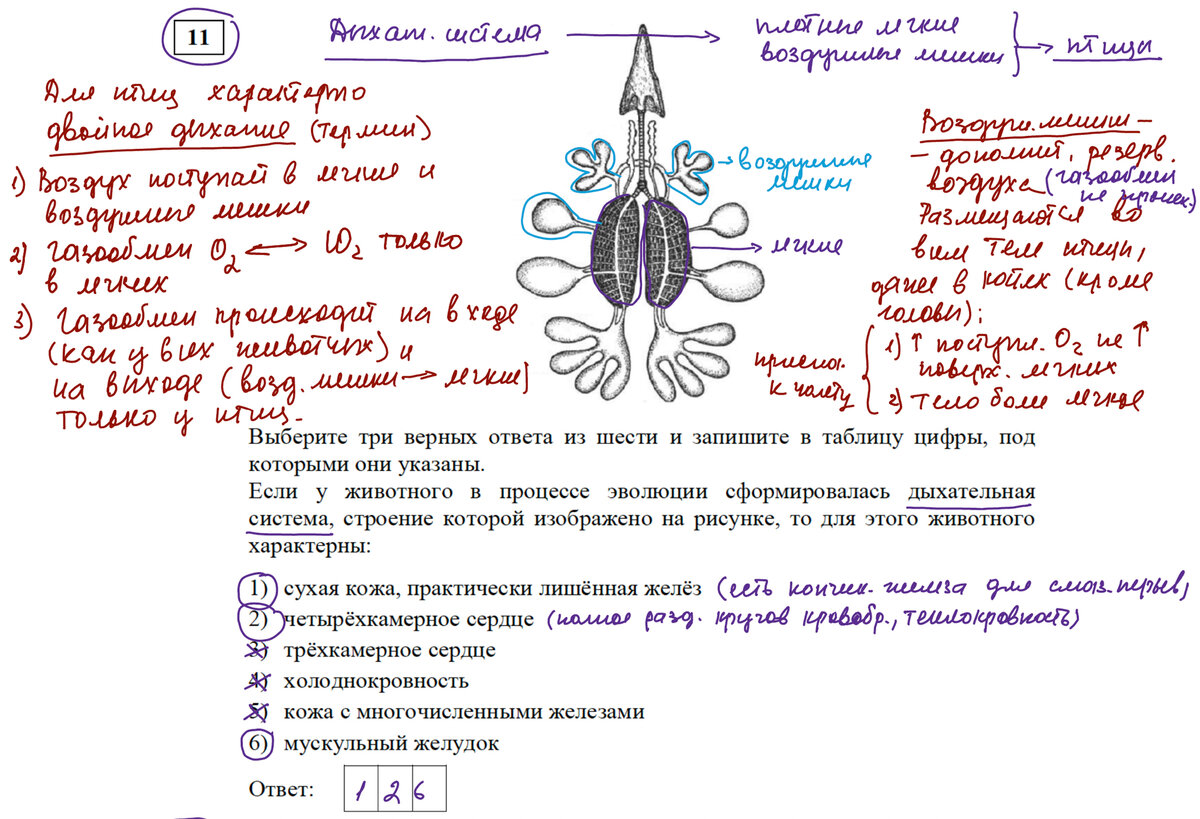 11
Дыхат. система
плотные легкие
воздушные мешки
птицы
Для птиц характерно
двойное дыхание (термин)
1) Воздух поступает в легкие и
воздушные мешки
2) газообмен O2 CO2 только
в легких
3) Газообмен происходит на входе
(как у всех животных) и
на выходе (возд. мешки → легкие)
только у птиц.
→ воздушные
мешки
легкие
Воздушн. мешки –
– дополнит, резерв.
воздуха (газообмен
не происх.)
Размещаются во
всем теле птицы,
даже в костях (кроме
головы);
приспос.
к полёту
1) ↑ поступл. O2 не ↑
поверх. легких
2) тело более легкое
Выберите три верных ответа из шести и запишите в таблицу цифры, под
которыми они указаны.
Если у животного в процессе эволюции сформировалась дыхательная
система, строение которой изображено на рисунке, то для этого животного
характерны:
1) сухая кожа, практически лишённая желёз (есть копчик. железа для смаз. перьев)
2) четырёхкамерное сердце (полное разд. кругов кровобр., теплокровность)
3) трёхкамерное сердце
4) холоднокровность
5) кожа с многочисленными железами
6) мускульный желудок
Ответ: 1 2 6